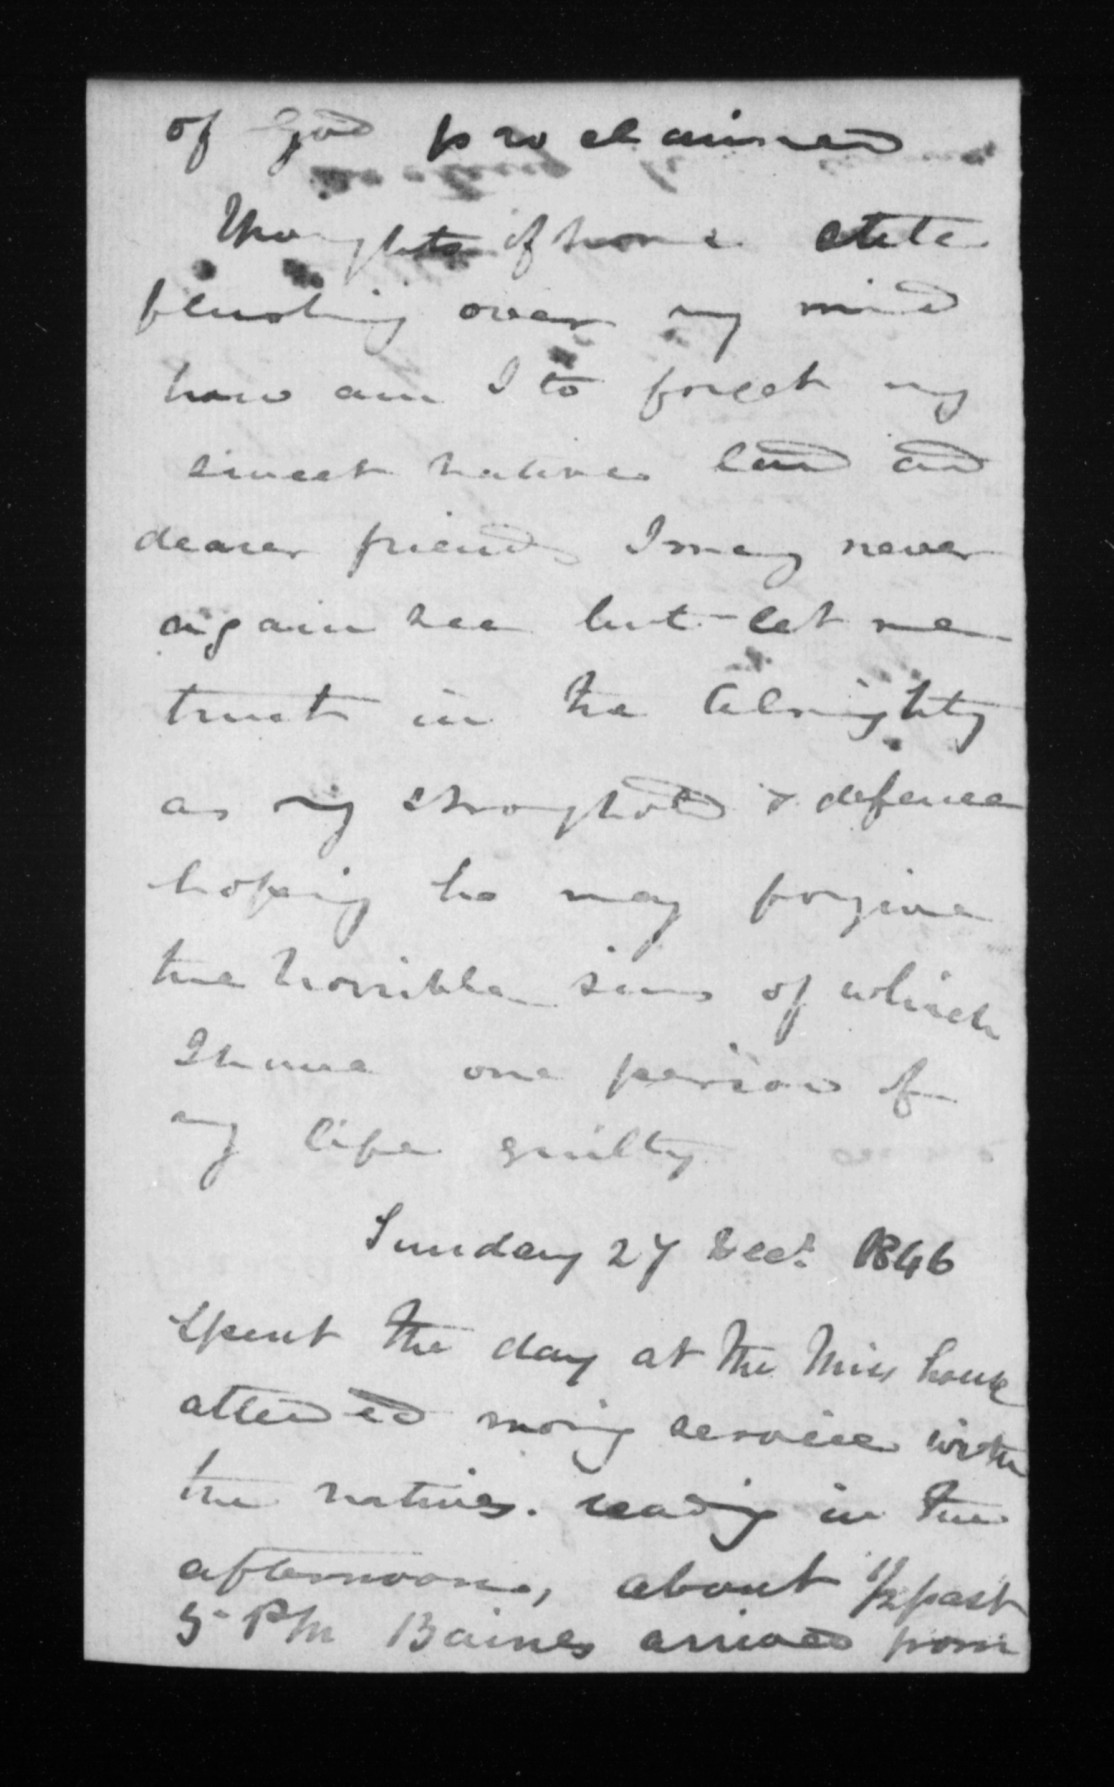 of God proclaimed
Thoughts of home
flushing over my mind
how am I to forget my
sweet native land and
dearer friends I may never
again see but let me
trust in the Almighty
as my stronghold & defence
hoping he may forgive
the horrible sins of which
I have one period of
my life guilty
Sunday 27 Decr. 1846
Spent the day at the Miss house
attended morng service with
the natives. readig in the
afternoon, about 1/2 past
5 PM Baines arrived from